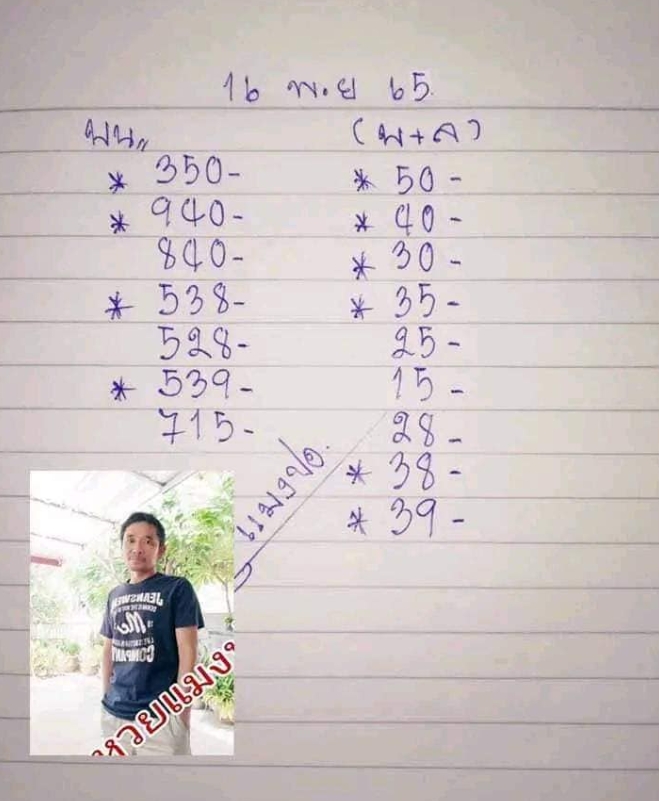 16 พ.ย 65
บน,,
* 350-
* 940-
840-
* 538-
528-
* 539-
715-
(บ+ล)
* 50-
* 40-
* 30-
* 35-
25-
15-
28-
* 38-
* 39-
แมงปอ.
JEANSWEAR
Me
COMPANY
หวยแมง